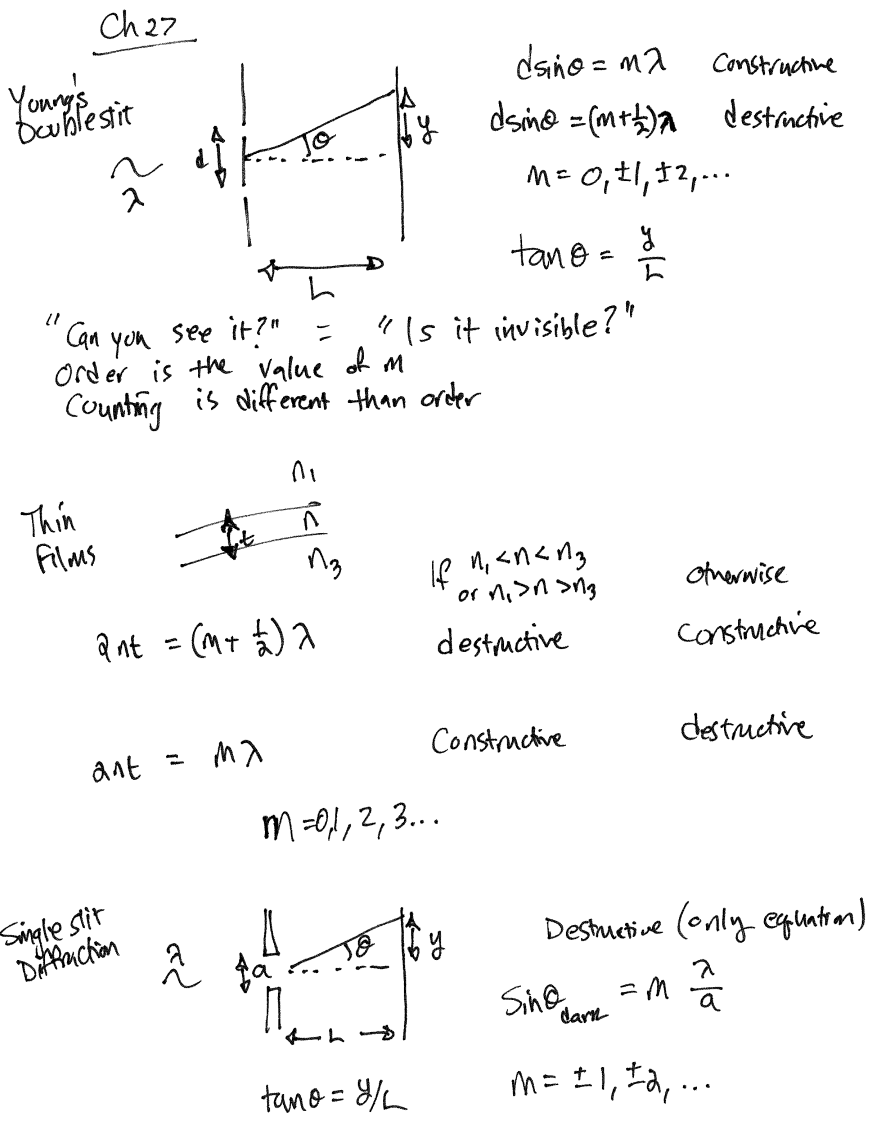 Ch 27
Young's
Doubleslit
λ
d
θ
y
L
dsinθ = mλ constructive
dsinθ = (m+½)λ destructive
m = 0, ±1, ±2, ...
tan θ = y/L
"Can you see it?" = "Is it invisible?"
Order is the value of m
Counting is different than order
Thin
Films
n₁
n
t
n₃
If n₁ < n < n₃
or n₁ > n > n₃
otherwise
2nt = (m + ½) λ destructive constructive
2nt = mλ constructive destructive
m = 0, 1, 2, 3...
Single slit
Diffraction
λ
a
θ
y
L
tan θ = y/L
Destructive (only equation)
Sinθ dark = m λ/a
m = ±1, ±2, ...